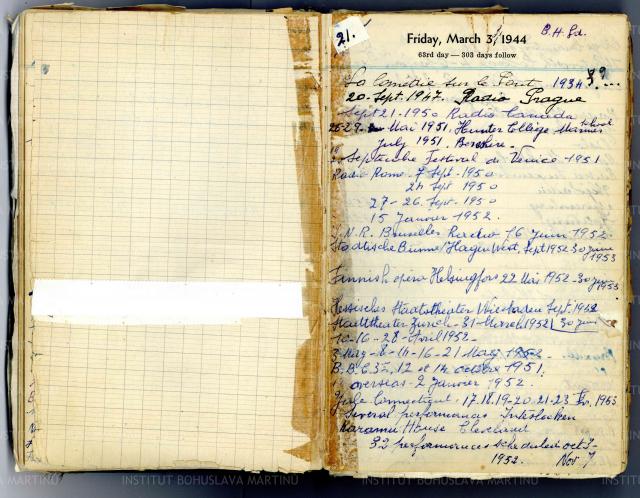 21.
Friday, March 3, 1944
B.H. Ld.
63rd day — 303 days follow
La Comédie sur le Pont 1934 ? ...
20. Sept. 1947. Radio Prague
Sept 21-1950 Radio Canada
26-27. Mai 1951. Hunter College Mannes School
July 1951. Berkshire.
Septembre Festival de Venice 1951
Radio Rome. 7 Sept. 1950
21 Sept 1950
27-26. Sept. 1950
15 Janvier 1952.
I.N.R. Bruxelles Radio 16 Juin 1952.
Stadtische Bühne/Hagen West. Sept 1952 30 juin 1953
Finnish opera Helsingfors 22 Mai 1952 - 30 1953
Hessisches Staatstheater Wiesbaden Sept. 1952
Stadttheater Zurich - 31 March 1952 30 juin
10-16-28 April 1952-
3 May-8-14-16-21 May 1952-
B.B.C. 3d, 12 et 14 octobre 1951.
overseas- 2 Janvier 1952.
Yale Connecticut, 17.18.19-20-21-23 1953
Several performances Interlochen
Karamu House Cleveland
32 performances scheduled oct 7-
1952. Nov 7
INSTITUT BOHUSLAVA MARTINŮ